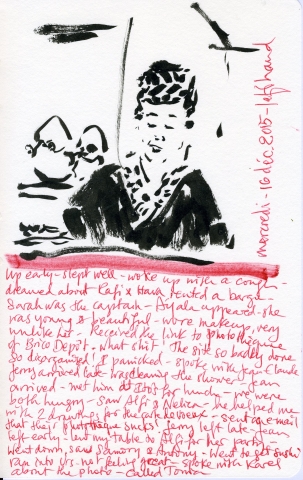 mercredi - 16 déc. 2015 - left hand
Up early - slept well - woke up with a cough -
dreamed about Rafi & Hava rented a barge -
Sarah was the captain - Ayala appeared - she
was young & beautiful - wore makeup, very
unlike her - Received the link to photothèque
of Brico Depôt. What shit. The site so badly done
So disorganized! I panicked - spoke with Jean-Claude
Jerry arrived late - was cleaning the shower - Jean
arrived - met him at for lunch - we were
both hungry - saw Alfi & - he helped me
with 2 drawings for the - sent an e-mail
that their photothèque sucks! Jerry left late - Jean
left early - lent my table to Alfi for his party -
Went down, saw & Antony - Went to get sushi
ran into - not feeling great - spoke with Karel
about the photo - called